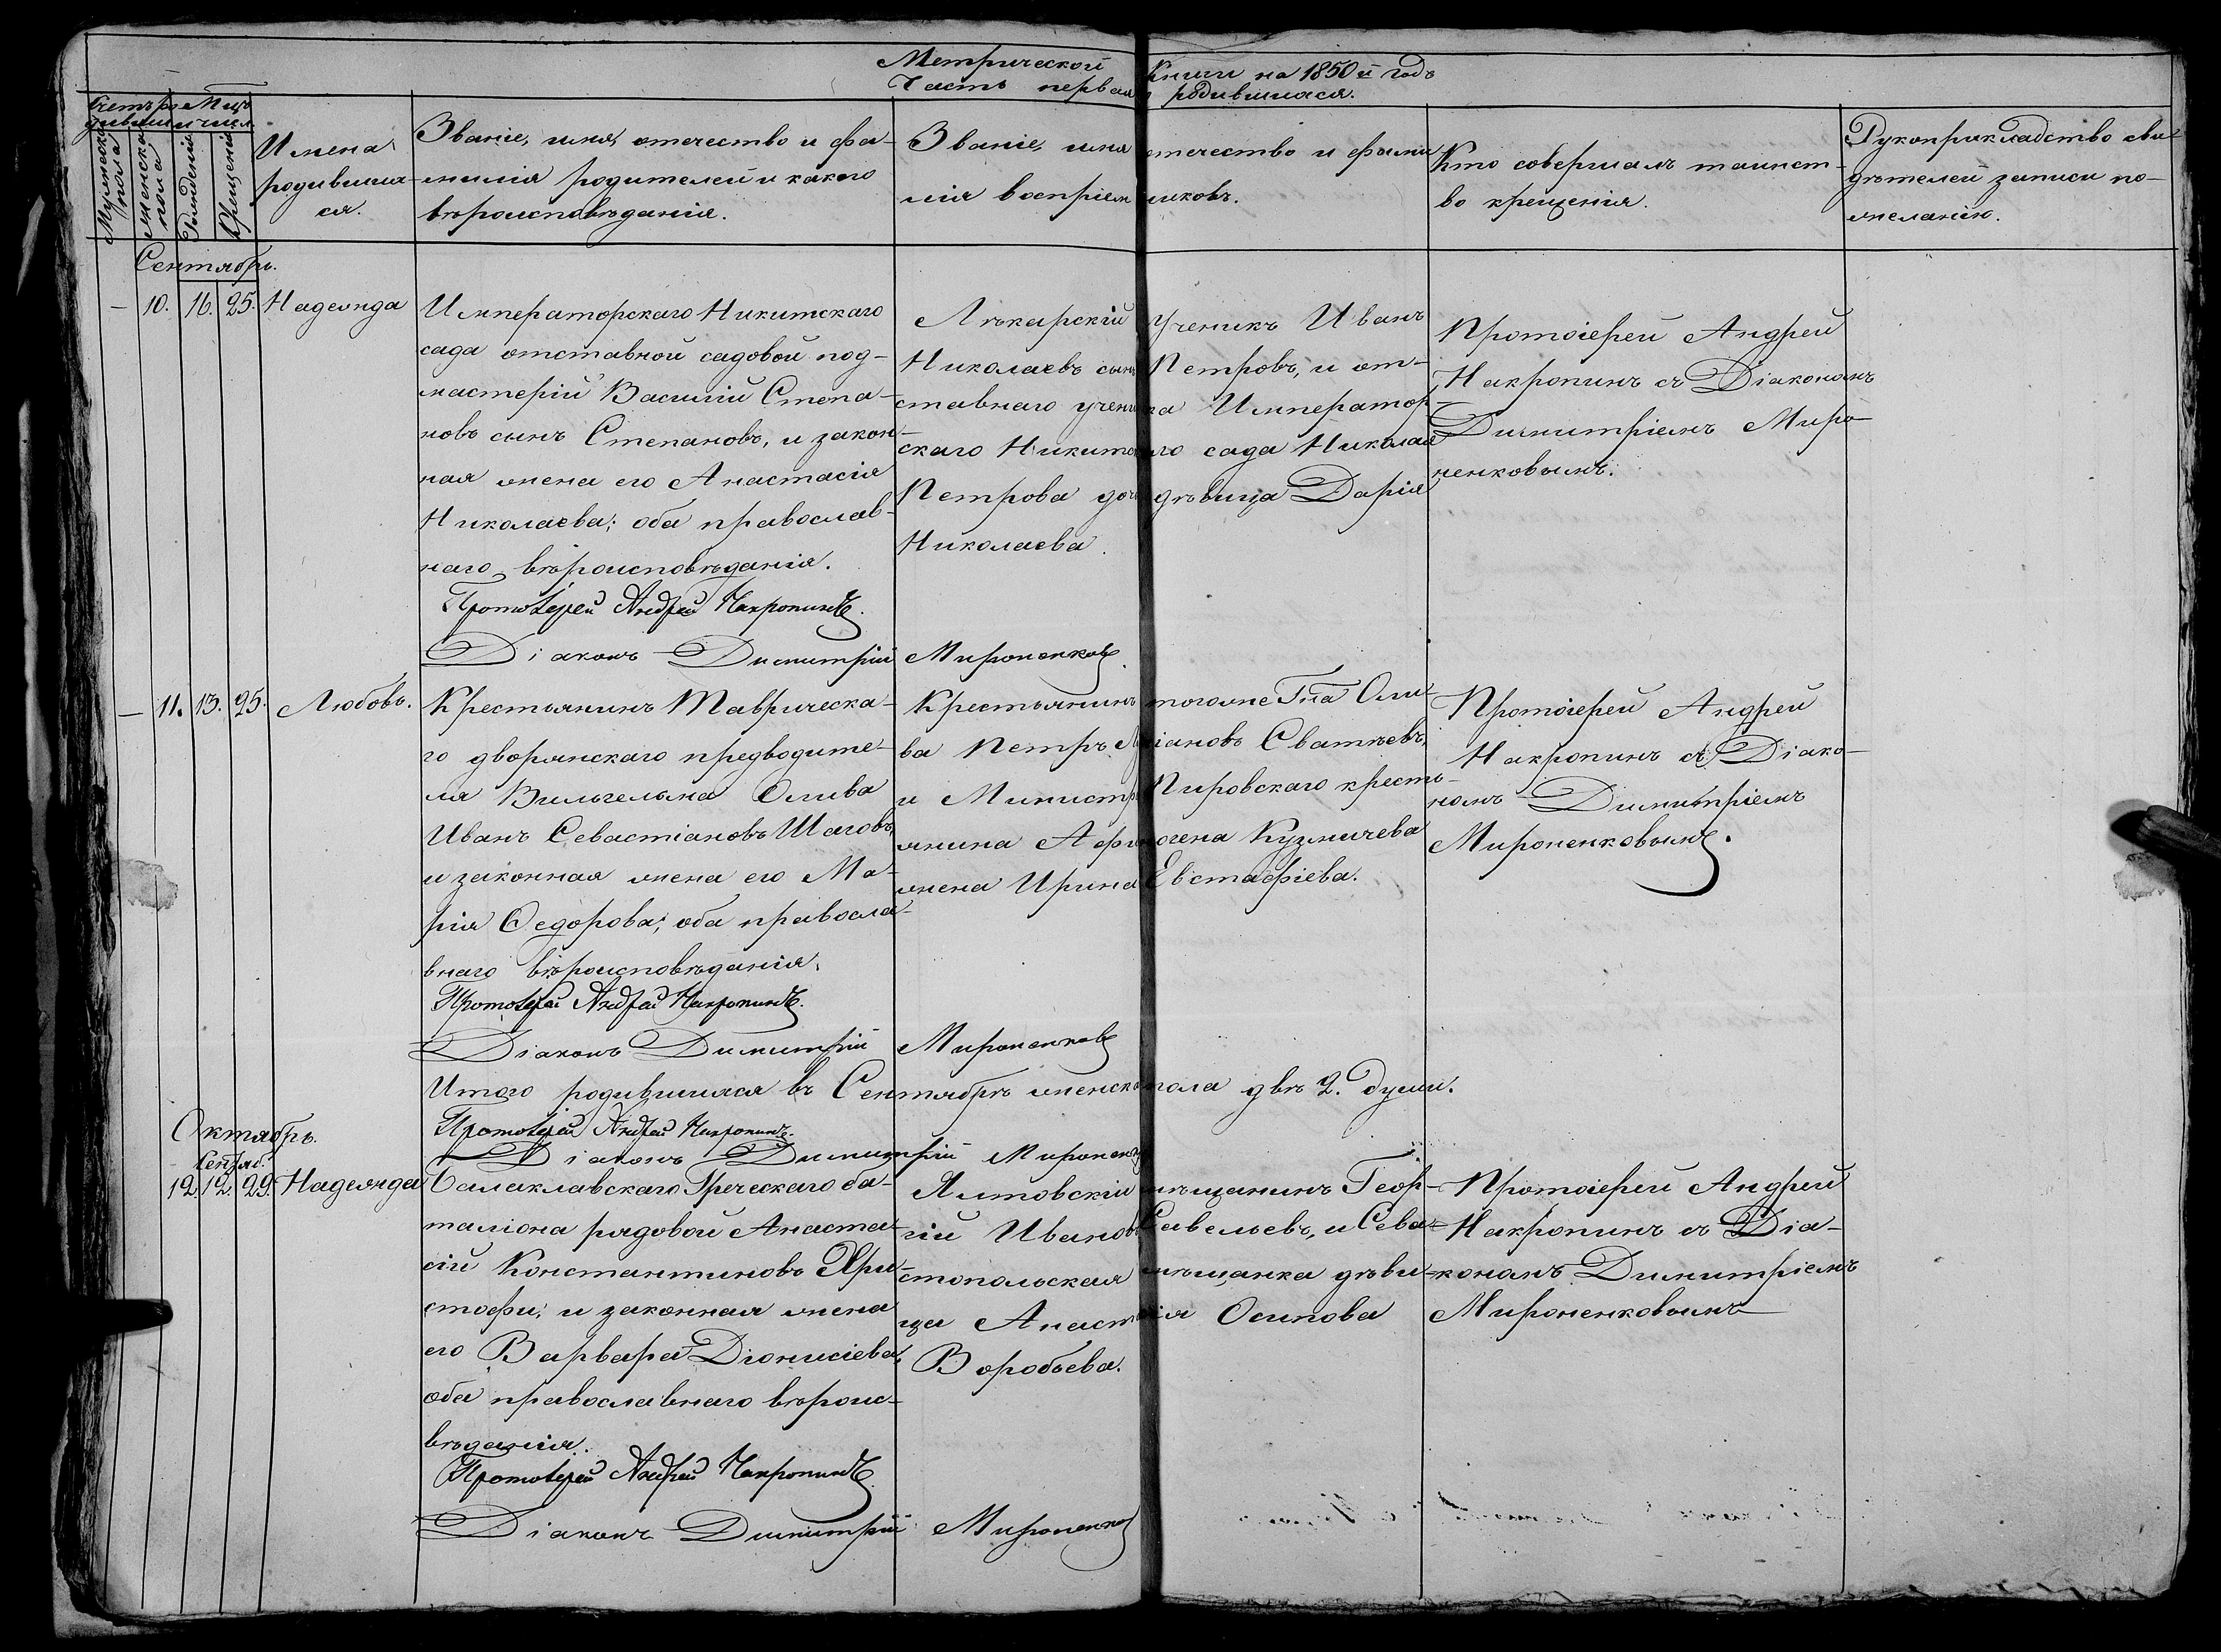 Метрической Книги на 1850й годъ
Часть первая родившихся.
Счетъ родившихся
Мужеска пола
Женска пола
Мѣс. и числ.
Рожденія
Крещенія
Имена
родивших-
ся.
Званіе, имя, отечество и фа-
милія родителей и какого
вѣроисповѣданія.
Званіе, имя отечество и фами
лія воспріемниковъ.
Кто совершалъ таинст-
во крещенія.
Рукоприкладство сви-
дѣтелей записи по-
желанію.
Сентябрь.
— 10. 16. 25. Надежда
Императорскаго Никитскаго
сада отставной садовой под-
мастерій Василій Степа-
новъ сынъ Степановъ, и закон-
ная жена его Анастасія
Николаева; оба православ-
наго вѣроисповѣданія.
Протоіерей Андрей Накропинъ.
Діаконъ Димитрій Мироненковъ
Лѣкарскій ученикъ Иванъ
Николаевъ сынъ Петровъ, и от-
ставнаго ученика Император-
скаго Никит го сада Николая
Петрова дочь дѣвица Дарія
Николаева.
Протоіерей Андрей
Накропинъ съ Діакономъ
Димитріемъ Миро-
ненковымъ.
— 11. 13. 25. Любовь.
Крестьянинъ Таврическа-
го дворянскаго предводите-
ля Вильгельма Олива
Иванъ Севастіановъ Шаговъ,
и законная жена его Ма-
рія Ѳедорова; оба правосла-
внаго вѣроисповѣданія.
Протоіерей Андрей Накропинъ.
Діаконъ Димитрій Мироненковъ
Крестьянинъ тогоже Гна Оли-
ва Петръ іановъ Сватѣевъ,
и Министра Пировскаго кресть-
янина Афиногена Кузмичева
жена Ирина Евстафіева.
Протоіерей Андрей
Накропинъ съ Діако-
номъ Димитріемъ
Мироненковымъ.
Итого родившихся въ Сентябрѣ женска пола двѣ 2. души.
Протоіерей Андрей Накропинъ.
Діаконъ Димитрій Мироненковъ
Октябрь.
Сентяб.
12. 12. 29. Надежда
Балаклавскаго Греческаго ба-
таліона рядовой Анаста-
сій Константиновъ Хри-
стофи; и законная жена
его Варвара Діонисіева,
оба православнаго вѣроис-
вѣданія.
Протоіерей Андрей Накропинъ.
Діаконъ Димитрій Мироненковъ
Ялтовскій мѣщанинъ Геор-
гій Ивановъ Савельевъ, и Сева-
стопольская мѣщанка дѣви-
ца Анастасія Осипова
Воробьева.
Протоіерей Андрей
Накропинъ съ Діа-
кономъ Димитріемъ
Мироненковымъ